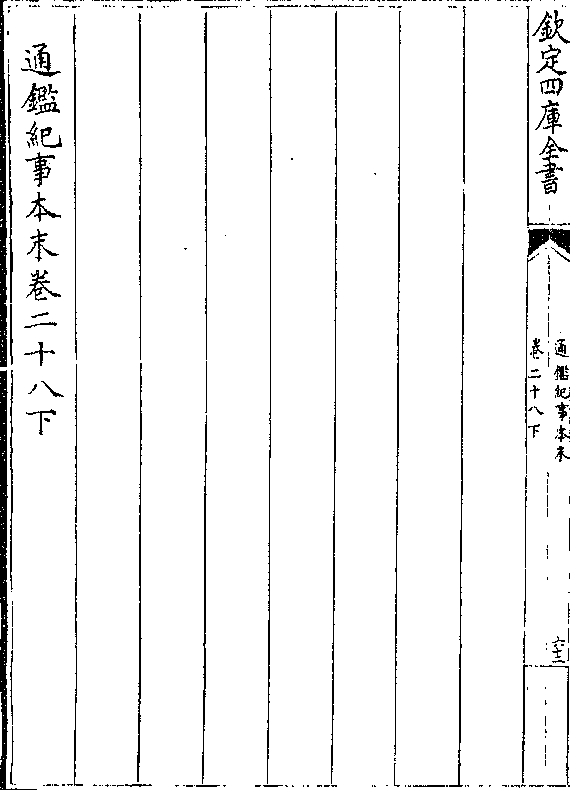 欽定四庫全書
通鑑紀事本末
卷二十八下
六十二
通鑑紀事本末卷二十八下